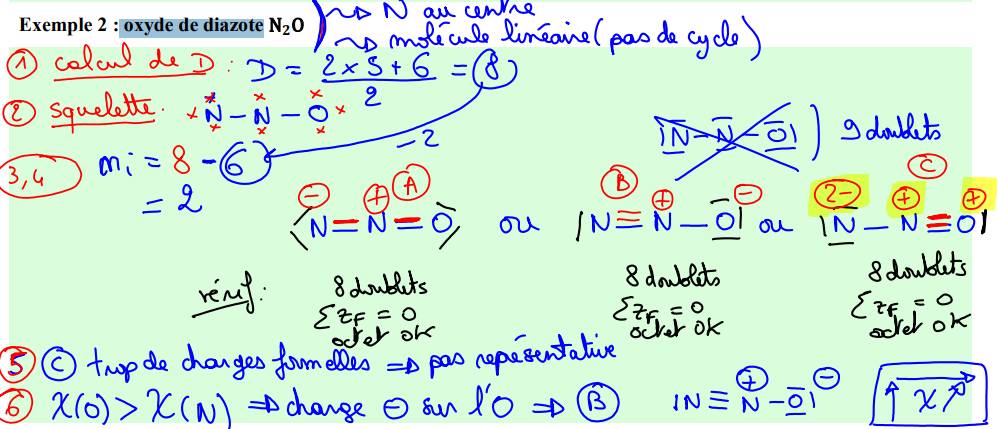 Exemple 2 : oxyde de diazote N₂O
⇝ N au centre
⇝ molécule linéaire (pas de cycle)
① calcul de D : D = (2×5+6)/2 = 8
② squelette : N – N – O
-2
|N – N – O| ) 9 doublets
3,4 mi = 8 - 6
= 2
⊖ ⊕ Ⓐ Ⓑ ⊕ ⊖ 2- ⊕ Ⓒ ⊕
⟨N = N = O⟩ ou |N ≡ N – O| ou |N – N ≡ O|
vérif : 8 doublets 8 doublets 8 doublets
Σ z_F = 0 Σ z_F = 0 Σ z_F = 0
octet OK octet OK octet OK
⑤ Ⓒ trop de charges formelles ⇒ pas représentative
⑥ χ(O) > χ(N) ⇒ charge ⊖ sur l'O ⇒ Ⓑ |N ≡ N – O| ⊕ ⊖ ↑ χ ↗